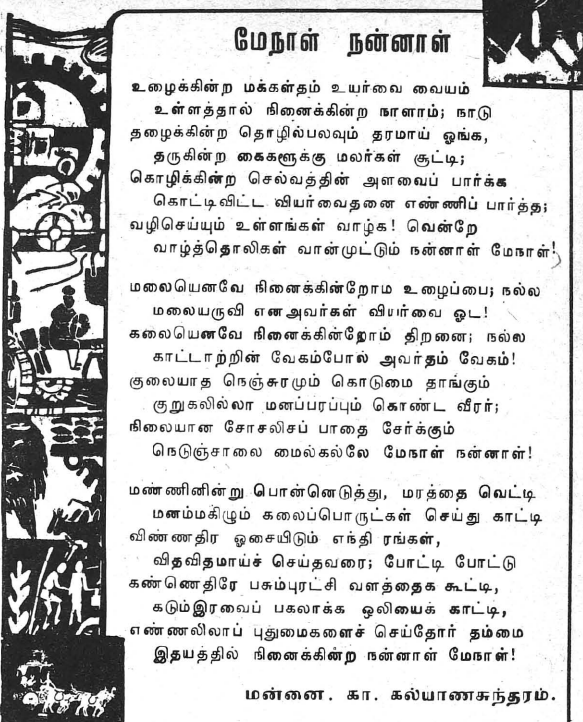 மேநாள் நன்னாள்
உழைக்கின்ற மக்கள்தம் உயர்வை வையம்
உள்ளத்தால் நினைக்கின்ற நாளாம்; நாடு
தழைக்கின்ற தொழில்பலவும் தரமாய் ஓங்க,
தருகின்ற கைகளுக்கு மலர்கள் சூட்டி;
கொழிக்கின்ற செல்வத்தின் அளவைப் பார்க்க
கொட்டிவிட்ட வியர்வைதனை எண்ணிப் பார்த்த;
வழிசெய்யும் உள்ளங்கள் வாழ்க! வென்றே
வாழ்த்தொலிகள் வான்முட்டும் நன்னாள் மேநாள்!
மலையெனவே நினைக்கின்றோம உழைப்பை; நல்ல
மலையருவி எனஅவர்கள் வியர்வை ஓட!
கலையெனவே நினைக்கின்றோம் திறனை; நல்ல
காட்டாற்றின் வேகம்போல் அவர்தம் வேகம்!
குலையாத நெஞ்சுரமும் கொடுமை தாங்கும்
குறுகலில்லா மனப்பரப்பும் கொண்ட வீரர்;
நிலையான சோசலிசப் பாதை சேர்க்கும்
நெடுஞ்சாலை மைல்கல்லே மேநாள் நன்னாள்!
மண்ணினின்று பொன்னெடுத்து, மரத்தை வெட்டி
மனம்மகிழும் கலைப்பொருட்கள் செய்து காட்டி
விண்ணதிர ஓசையிடும் எந்தி ரங்கள்,
விதவிதமாய்ச் செய்தவரை; போட்டி போட்டு
கண்ணெதிரே பசும்புரட்சி வளத்தைக கூட்டி,
கடும்இரவைப் பகலாக்க ஒலியைக் காட்டி,
எண்ணலிலாப் புதுமைகளைச் செய்தோர் தம்மை
இதயத்தில் நினைக்கின்ற நன்னாள் மேநாள்!
மன்னை. கா. கல்யாணசுந்தரம்.